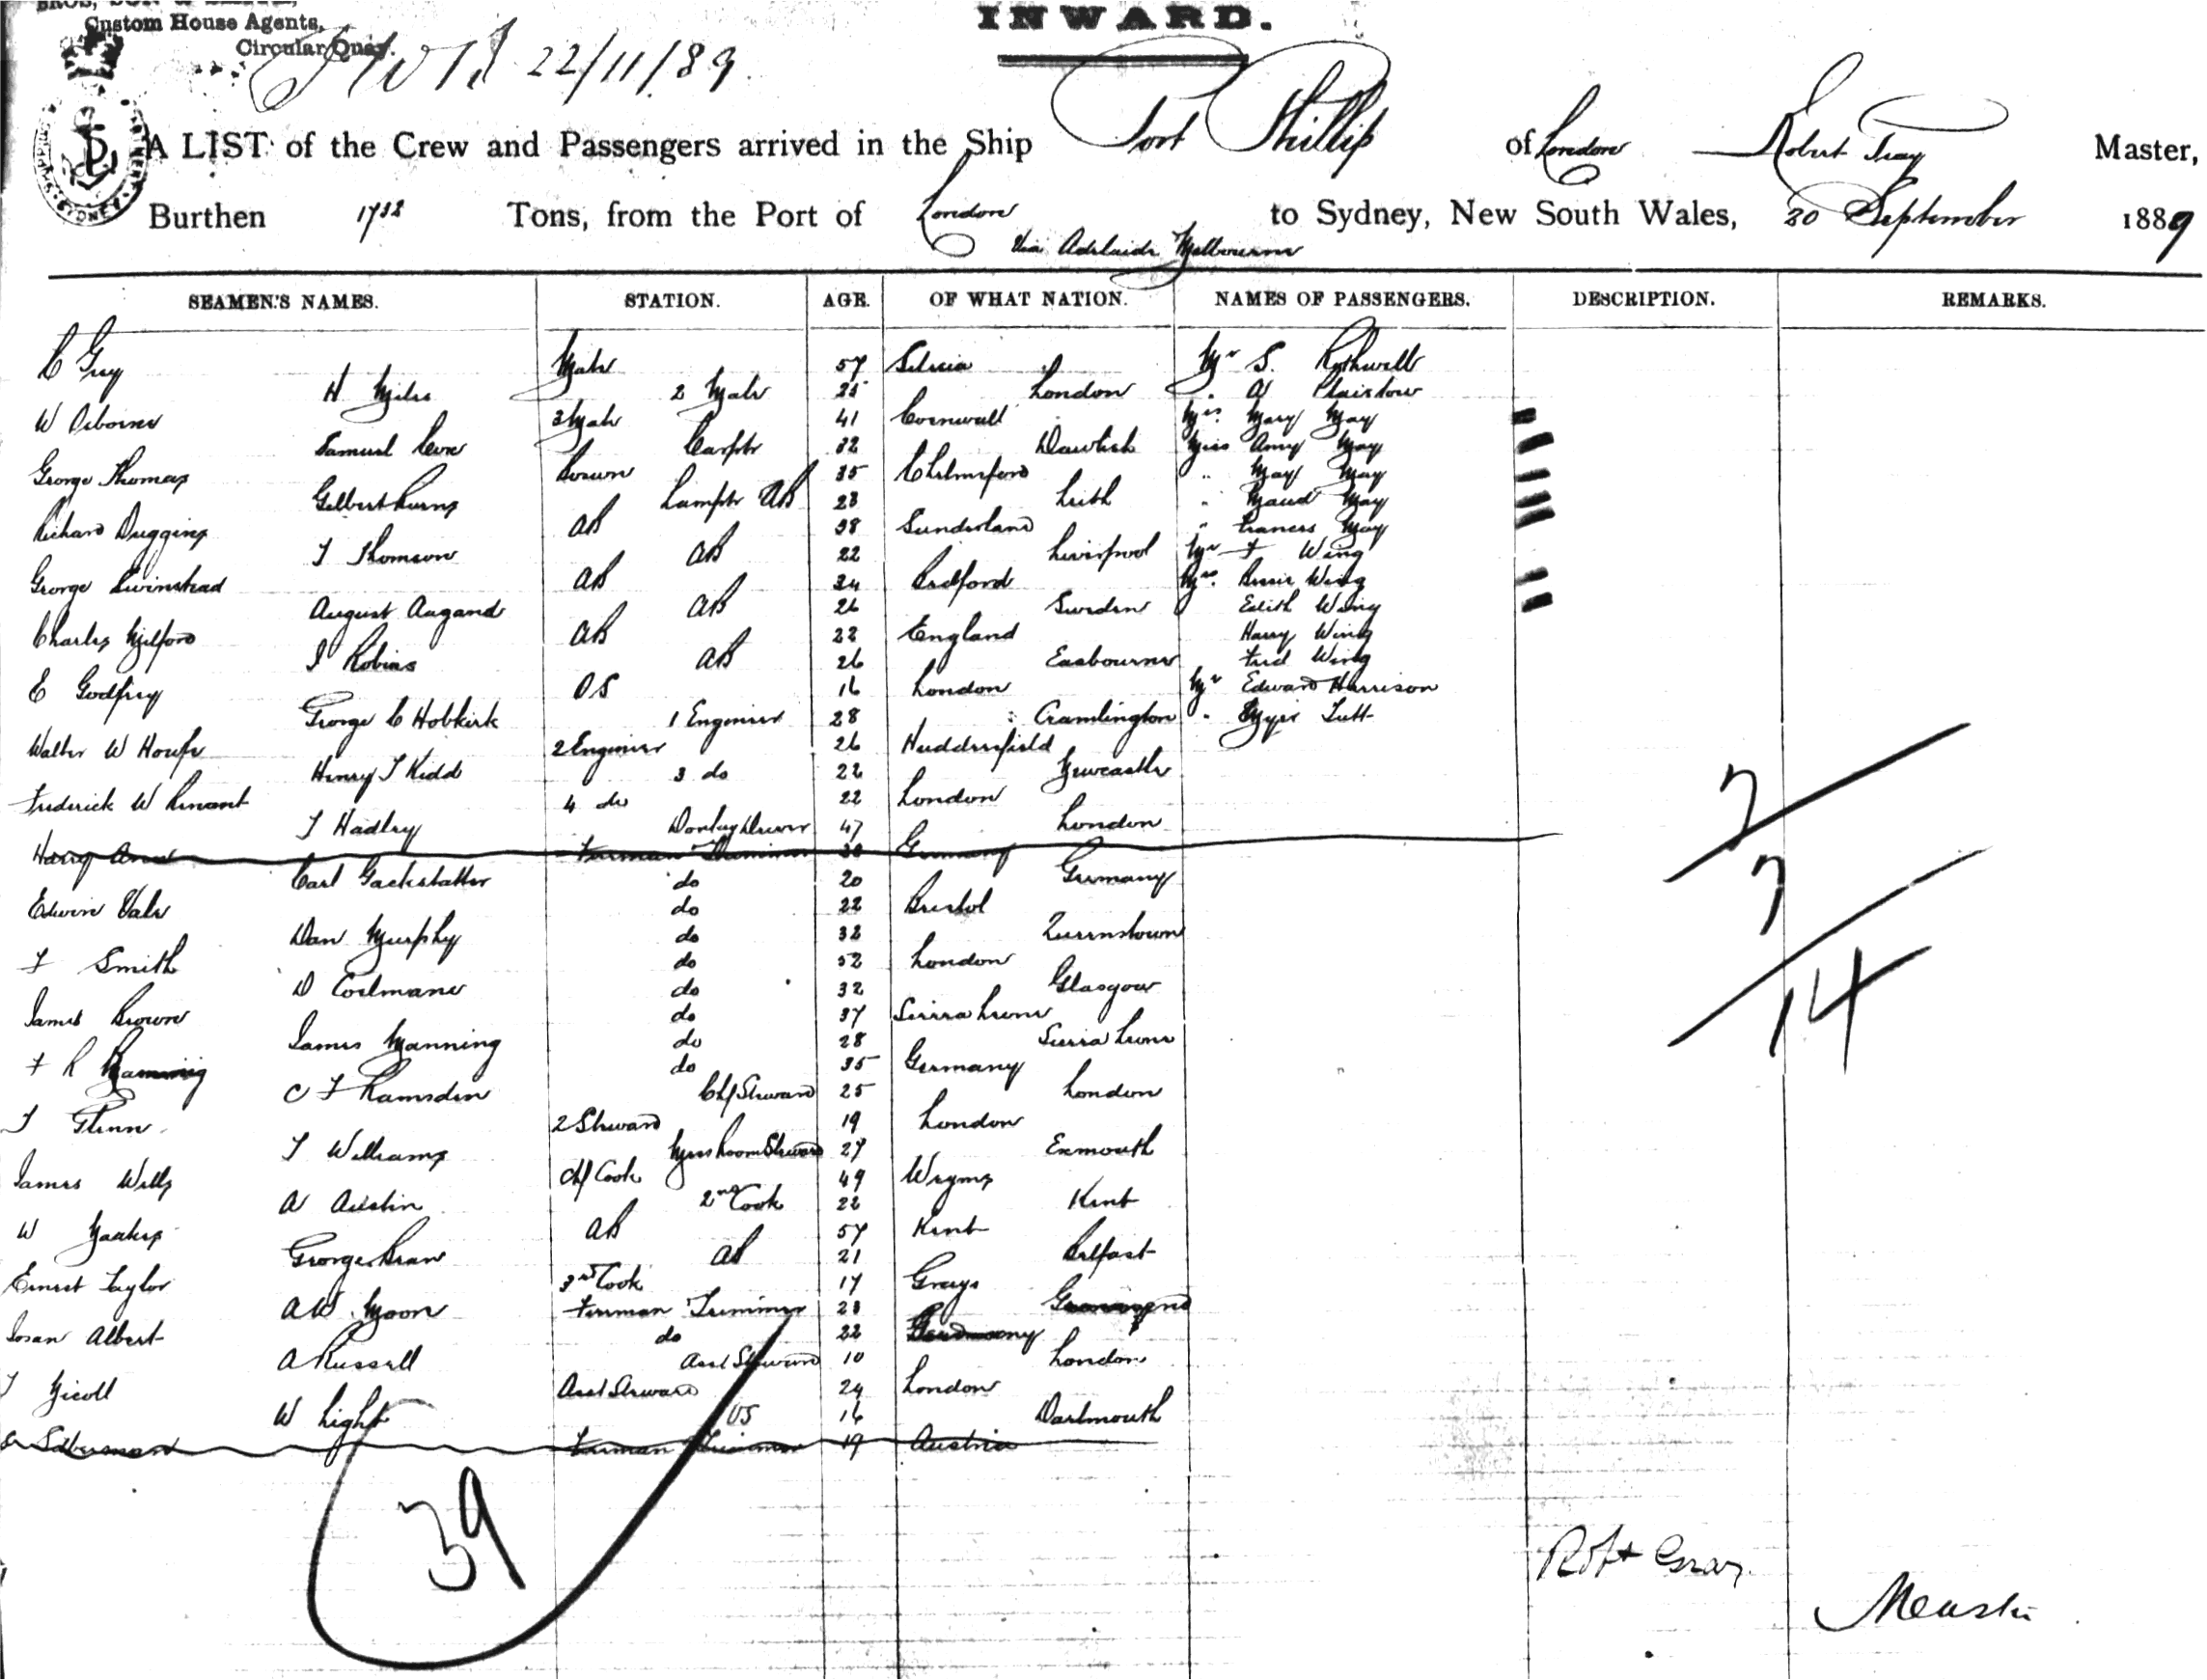 Custom House Agents,
Circular Quay.
INWARD.
22/11/89.
A LIST of the Crew and Passengers arrived in the Ship Port Phillip of London Robert Gray Master,
Burthen Tons, from the Port of London to Sydney, New South Wales, September 1889
Via Adelaide Melbourne
SEAMEN'S NAMES. STATION. AGE. OF WHAT NATION. NAMES OF PASSENGERS. DESCRIPTION. REMARKS.
C Guy Mate 57 Mr S. Rothwell
H Miles 2 Mate 25 London " A Plaistow
W Osborne 3 Mate 41 Cornwall Mrs Mary May
Samuel Carptr 32 Dawlish Miss Amy May
George Thomas Bosun 35 Chelmsford " May May
Gilbert Burns Lamptr AB 28 Leith " Maud May
Richard Duggins AB 38 Sunderland " Frances May
T Thomson AB 22 Liverpool Mr F Wing
George Swinstead AB 24 Bedford Mrs Bessie Wing
August AB 26 Sweden Edith Wing
Charles Milford AB 22 England Harry Wing
J Robins AB 26 Easbourne Fred Wing
E Godfrey OS 16 London Mr Edward Harrison
George C Hobkirk 1 Engineer 28 Cramlington " Tutt
Walter W 2 Engineer 26 Huddersfield
Henry T Kidd 3 do 22 Newcastle
Frederick W 4 do 22 London
T Hadley 47 London
Harry Fireman Trimmer Germany
Carl Gackstatter do 20 Germany
Edwin Vale do 22 Bristol
Dan Murphy do 32 Queenstown
F Smith do 52 London
D do 32 Glasgow
James Brown do 37 Sierra Leone
James Manning do 28 Sierra Leone
F R do 35 Germany
C F Ramsden Chf Steward 25 London
T Glenn 2 Steward 19 London
T Williams Messroom Steward 27 Exmouth
James Wells Chf Cook 49
A Austin 2nd Cook 22 Kent
W AB 57 Kent
George Bean AB 21 Belfast
Ernest Taylor 3rd Cook 17 Grays
A W Moon Fireman Trimmer 23
Albert do 22
A Russell Asst Steward London
T Nicoll Asst Steward 24 London
W Light OS 16 Dartmouth
Silberman Fireman Trimmer 19 Austria
7
7
14
39
Robt Gray.